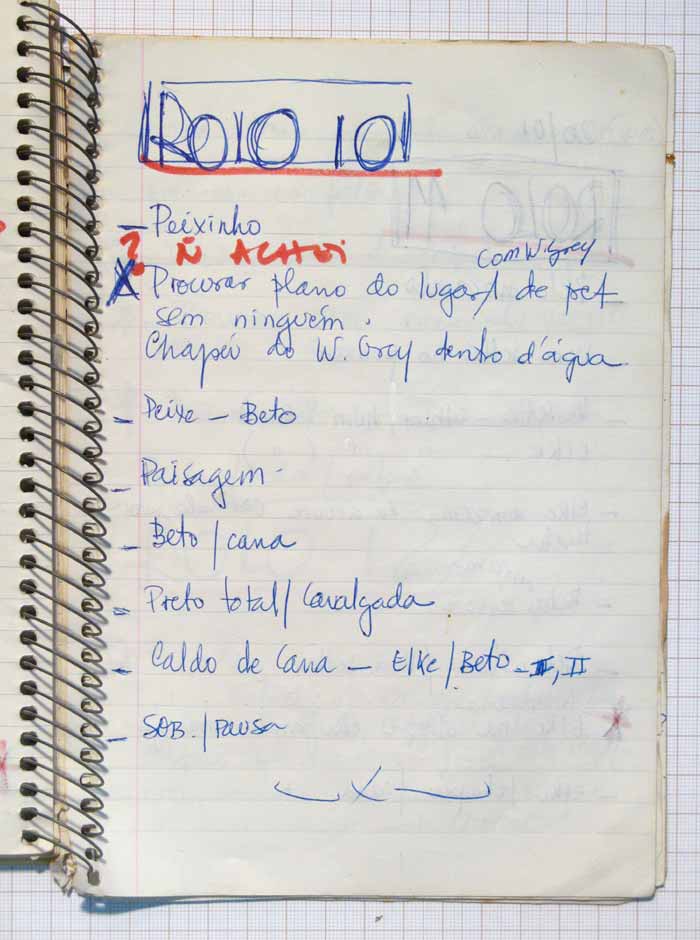 ROLO 10
– Peixinho
? Ñ ACHEI
Com W. Grey
X Procurar plano do lugar/ de pref
sem ninguém.
Chapéu do W. Grey dentro d'água.
– Peixe – Beto
– Paisagem –
– Beto / cana
= Preto total / Cavalgada
– Caldo de Cana – Elke / Beto – II, II
– SOB. / PAUSA
X